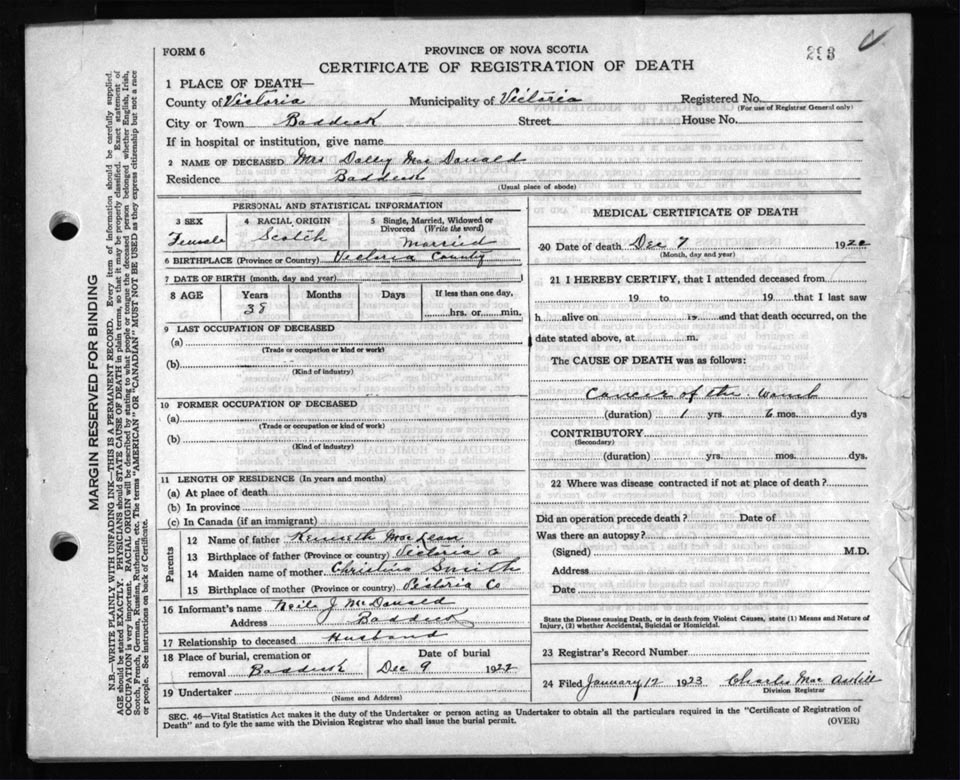 FORM 6
PROVINCE OF NOVA SCOTIA
293
CERTIFICATE OF REGISTRATION OF DEATH
1 PLACE OF DEATH—
County of Victoria Municipality of Victoria Registered No.
(For use of Registrar General only)
City or Town Baddeck Street House No.
If in hospital or institution, give name
2 NAME OF DECEASED Mrs Dolly MacDonald
Residence Baddeck
(Usual place of abode)
PERSONAL AND STATISTICAL INFORMATION
3 SEX 4 RACIAL ORIGIN 5 Single, Married, Widowed or
Divorced (Write the word)
Female Scotch Married
6 BIRTHPLACE (Province or Country) Victoria County
7 DATE OF BIRTH (month, day and year)
8 AGE Years Months Days If less than one day,
38 hrs. or min.
9 LAST OCCUPATION OF DECEASED
(a)
(Trade or occupation or kind or work)
(b)
(Kind of industry)
10 FORMER OCCUPATION OF DECEASED
(a)
(Trade or occupation or kind or work)
(b)
(Kind of industry)
11 LENGTH OF RESIDENCE (In years and months)
(a) At place of death
(b) In province
(c) In Canada (if an immigrant)
Parents
12 Name of father Kenneth MacLean
13 Birthplace of father (Province or country) Victoria Co
14 Maiden name of mother Christina Smith
15 Birthplace of mother (Province or country) Victoria Co
16 Informant's name Neil J McDonald
Address Baddeck
17 Relationship to deceased Husband
18 Place of burial, cremation or Date of burial
removal Baddeck Dec 9 1922
19 Undertaker
(Name and Address)
MEDICAL CERTIFICATE OF DEATH
20 Date of death Dec 7 192
(Month, day and year)
21 I HEREBY CERTIFY, that I attended deceased from
19 to 19 that I last saw
h alive on 19 and that death occurred, on the
date stated above, at m.
The CAUSE OF DEATH was as follows:
Cancer of the womb
(duration) 1 yrs. 6 mos. dys
CONTRIBUTORY
(Secondary)
(duration) yrs. mos. dys.
22 Where was disease contracted if not at place of death?
Did an operation precede death? Date of
Was there an autopsy?
(Signed) M.D.
Address
Date
State the Disease causing Death, or in death from Violent Causes, state (1) Means and Nature of
Injury, (2) whether Accidental, Suicidal or Homicidal.
23 Registrar's Record Number
24 Filed January 12 1923 Charles Mac
Division Registrar
SEC. 46—Vital Statistics Act makes it the duty of the Undertaker or person acting as Undertaker to obtain all the particulars required in the "Certificate of Registration of
Death" and to fyle the same with the Division Registrar who shall issue the burial permit.
(OVER)
MARGIN RESERVED FOR BINDING
N.B.—WRITE PLAINLY WITH UNFADING INK—THIS IS A PERMANENT RECORD. Every item of information should be carefully supplied.
AGE should be stated EXACTLY. PHYSICIANS should STATE CAUSE OF DEATH in plain terms, so that it may be properly classified. Exact statement of
OCCUPATION is very important. RACIAL ORIGIN will be described by stating to what people or tongue the deceased person belonged whether English, Irish,
Scotch, French, German, Russian, Ruthenian, etc. The terms "AMERICAN" OR "CANADIAN" MUST NOT BE USED as they express citizenship but not a race
or people. See instructions on back of Certificate.